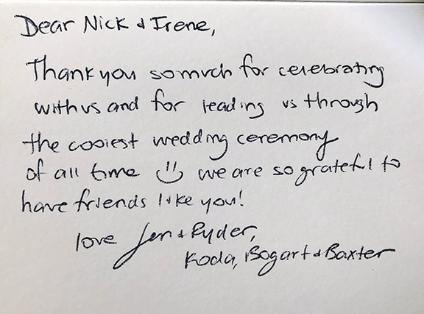 Dear Nick & Irene,
Thank you so much for celebrating
with us and for leading us through
the coolest wedding ceremony
of all time :) we are so grateful to
have friends like you!
love Jen & Ryder,
Koda, Bogart & Baxter